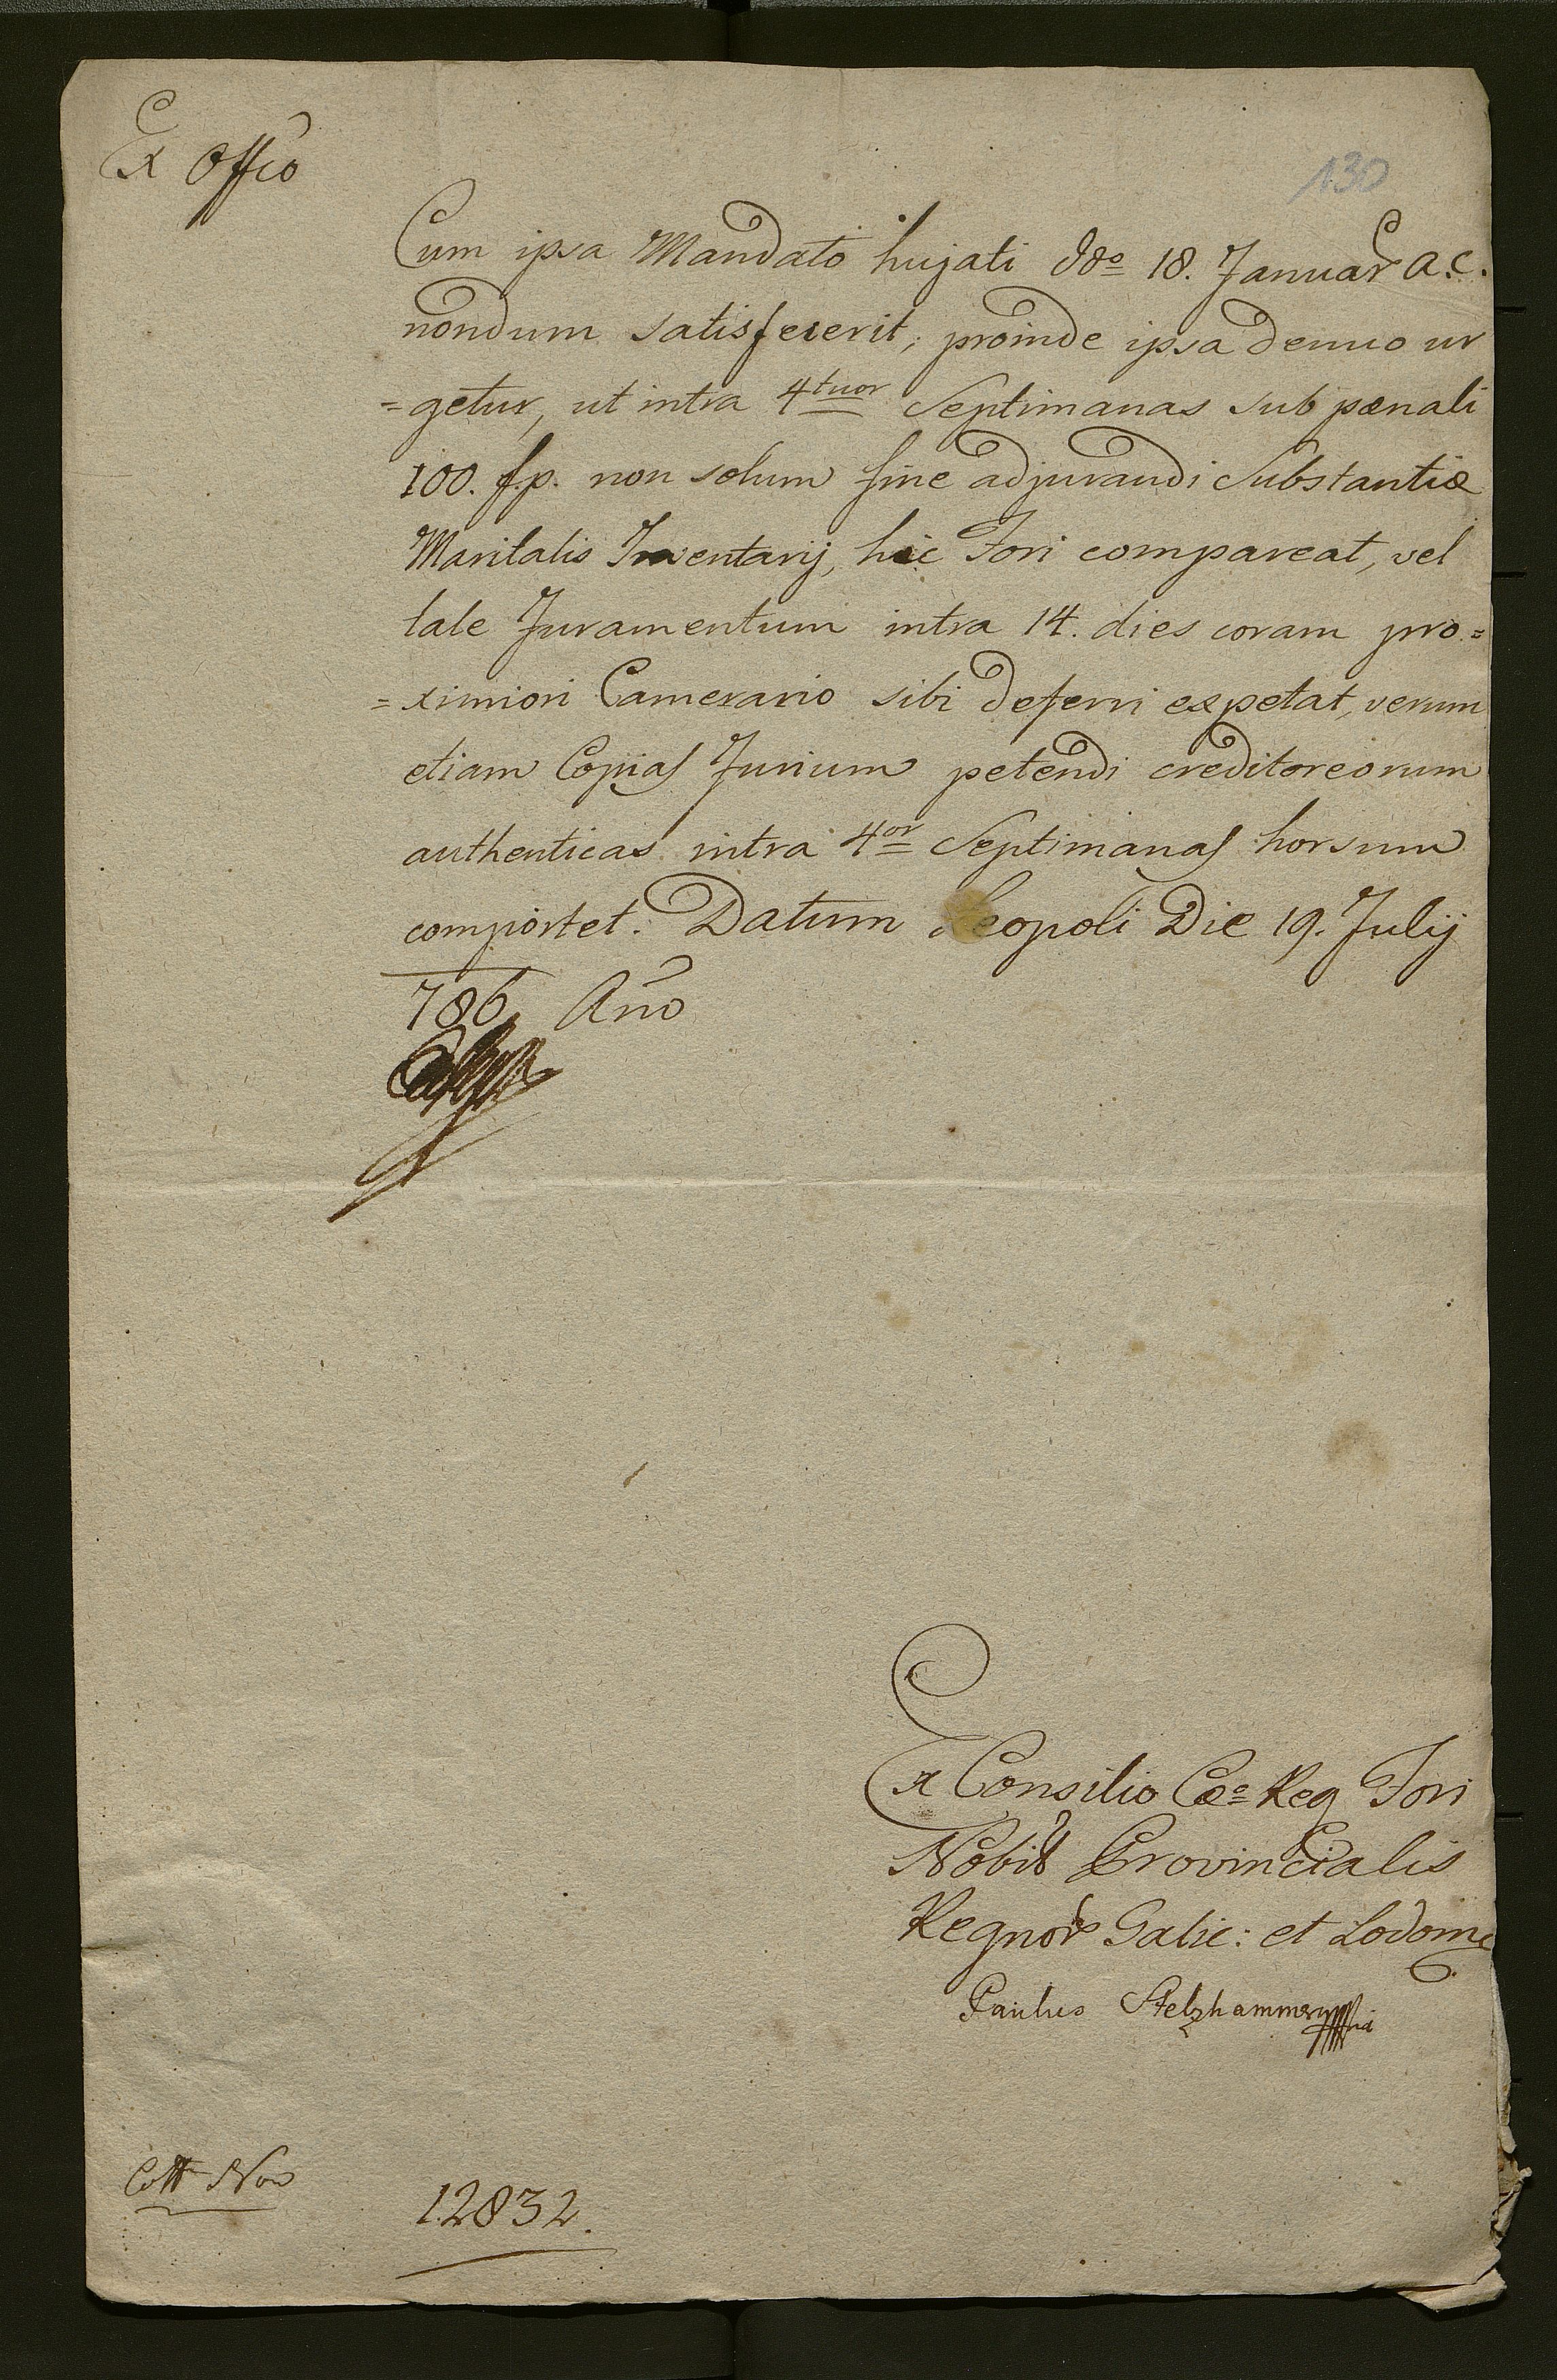 Ex Offio
130
Cum ipsa Mandato hujati ddo 18. Januar a.c.
nondum satisfecerit, proinde ipsa denuo ur
=getur, ut intra 4tuor Septimanas sub pœnali
100. fp. non solum fine adjurandi Substantiæ
Maritalis Inventarij, hic Fori compareat, vel
tale Juramentum intra 14. dies coram pro=
=ximiori Camerario sibi deferri expetat, verum
etiam Copias Jurium petendi creditoreorum
authenticas intra 4or Septimanas horsum
comportet. Datum Leopoli Die 19. Julij
786 Año
Ex Consilio Cæo Reg Fori
Nobil Provincialis
Regnor Galic: et Lodom
Paulus Stelzhammer
Cott Nro
12832.